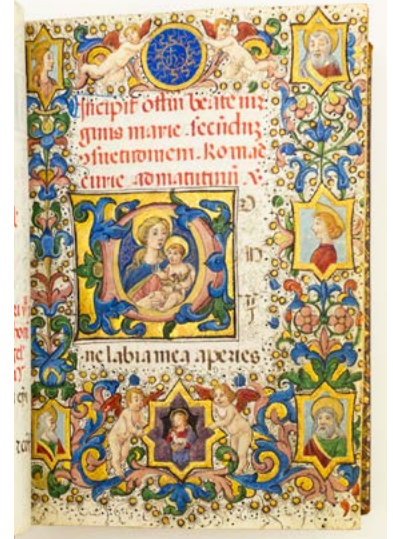 Incipit offiu beate vir
ginis marie secunduz
Romae
curie ad matutinu V
D
ne labia mea aperies